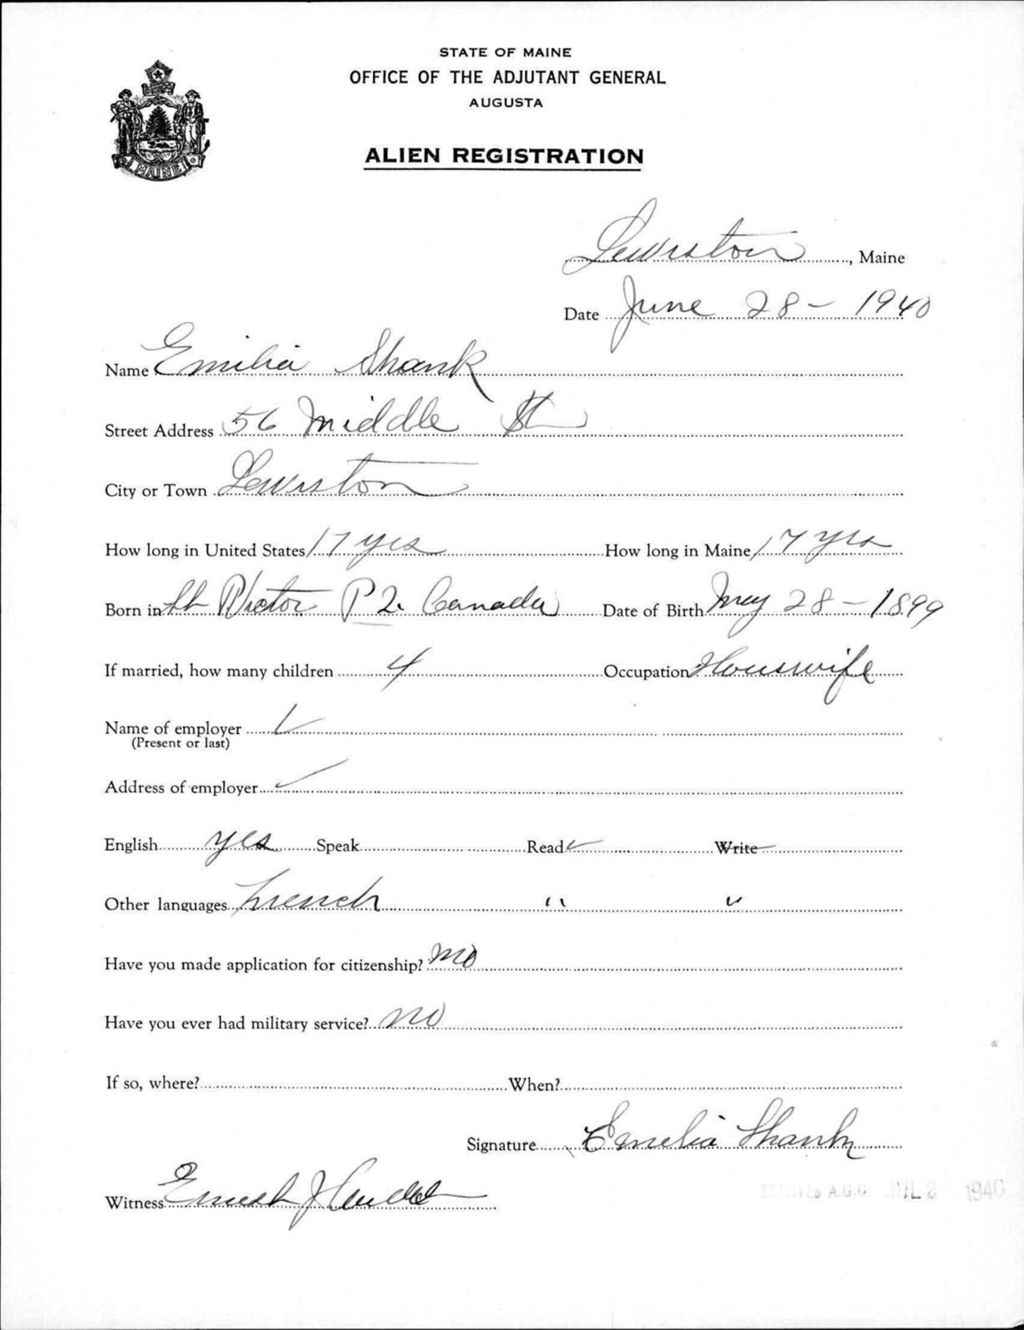 STATE OF MAINE
OFFICE OF THE ADJUTANT GENERAL
AUGUSTA
MAINE
ALIEN REGISTRATION
Lewiston, Maine
Date June 28 - 1940
Name Emilia Shank
Street Address 56 Middle St
City or Town Lewiston
How long in United States 17 yrs How long in Maine 17 yrs
Born in St Victor P Q. Canada Date of Birth May 28 - 1899
If married, how many children 4 Occupation Houswife
Name of employer
(Present or last)
Address of employer
English yes Speak Read ✓ Write
Other languages French " "
Have you made application for citizenship? no
Have you ever had military service? no
If so, where? When?
Signature Emelia Shank
Witness
A.G.O. JUL 2 1940